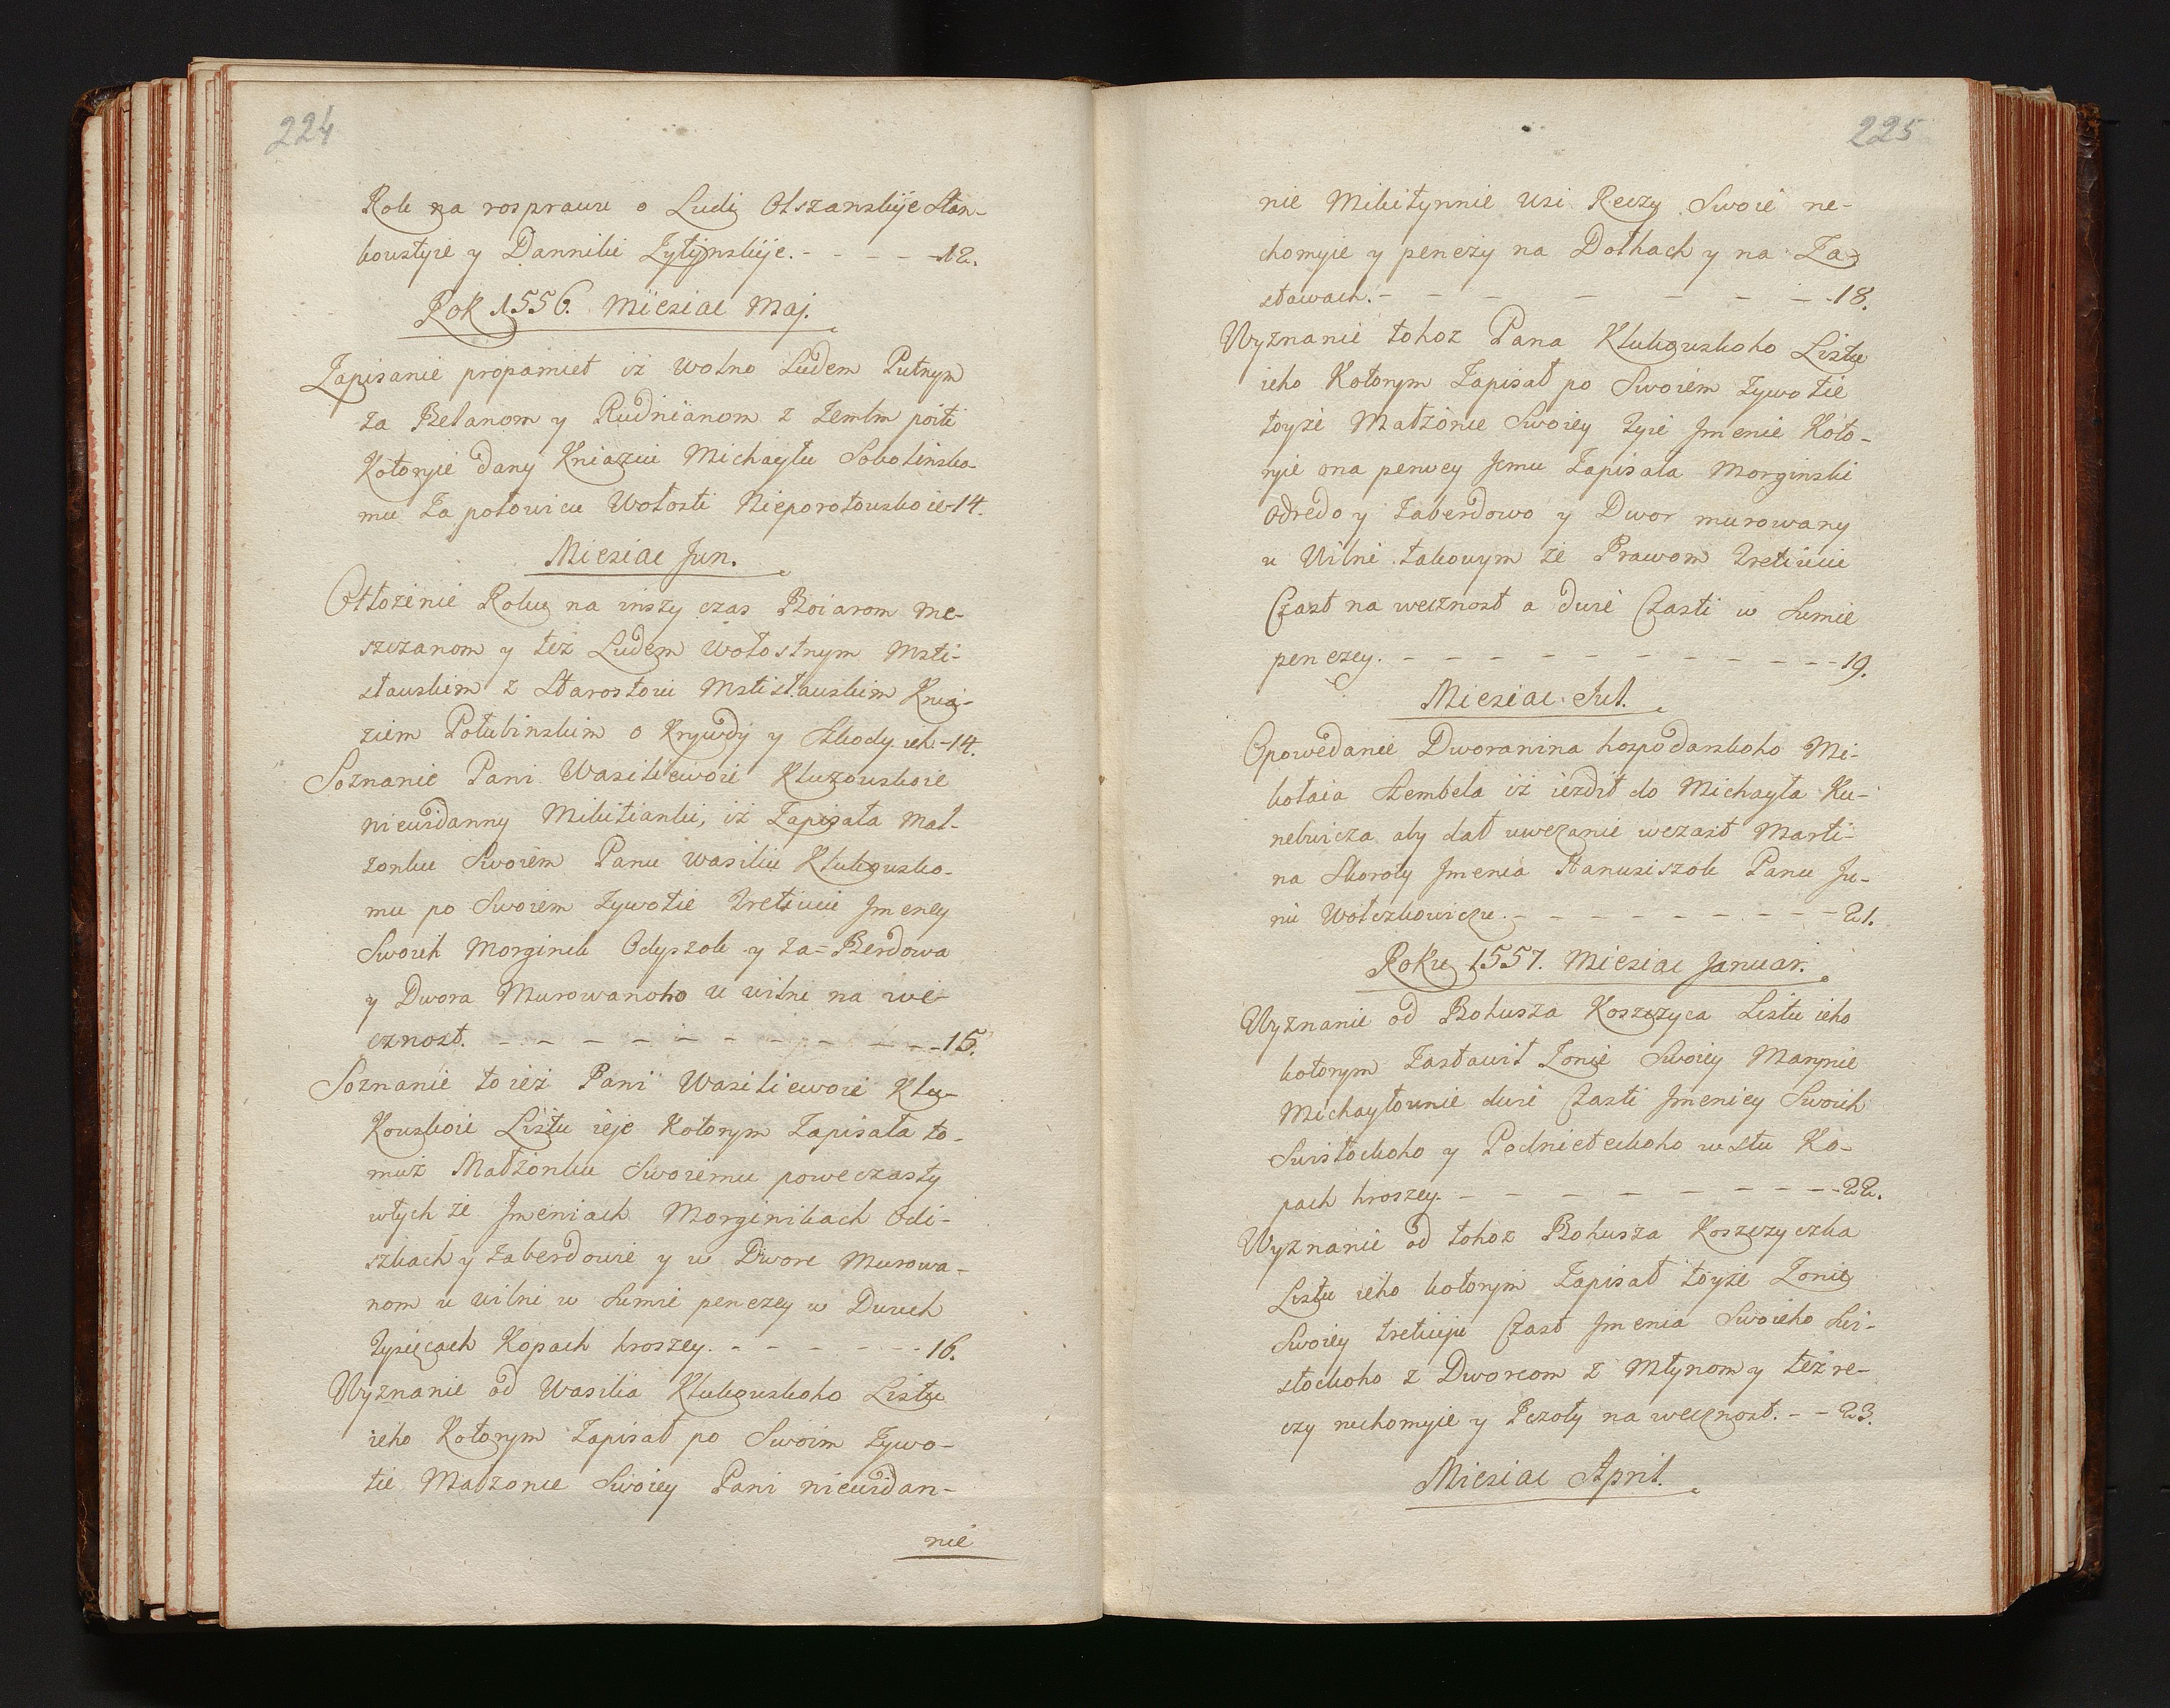 224
Rok na rosprawu o Ludi Olszanskije Stan-
kowstyie y Dannikі Zytynskije. - - - - - 12.
Rok 1556. Miesiac Maj.
Zapisanie propamiet iż wolno Ludem Putnym
za Belanom y Rudnianom z zemlm poiti
Kotoryie dany Kniaziu Michayłu Sokolinsko-
mu za połowicu Wołosti Nieporotowskoie - 14.
Miesiac Jun.
Otłożenie Roku na inszy czas Boiarom me-
szczanom y też Ludem wołostnym Msti-
sławskim z Starostoiu Mstisławskim Knia-
ziem Połubinskim o Krywdy y Szkody ich - 14.
Soznanie Pani Wasiliewoie Kłuzowskoie
niewidanny Mikitianki, iż Zapisała Mał-
żonku Swoiem Panu Wasiliu Kłukowsko-
mu po Swoiem Zywotie tretiuiu Imeney
Swoich Morginik Odyszok y Za=Berdowa
y Dwora Murowanoho u wilni na we-
cznost. - - - - - - - - - - 15.
Soznanie toież Pani Wasiliewoie Kłu-
Kowskoie Listu ieje Kotorym Zapisała to-
muż Małżonku Swoiemu poweczasty
wtych że Imeniach Morginikach Odi-
szkach y zaberdowie y w Dwore Murowa-
nom u wilni w Sumie penezey w Dwuch
tysięcach Kopach hroszey. - - - - - - 16.
Wyznanie od Wasilia Kłukowskoho Listu
ieho Kotorym Zapisał po Swoim Zywo-
tie Małżonce Swoiey Pani niewidan-
nie
225
nie Mikitynnie usi Reczy Swoie ne-
chomyie y penezy na Dołhach y na Za-
stawach. - - - - - - - - - 18.
Wyznanie tohoż Pana Kłukowskoho Listu
ieho Kotorym Zapisał po Swoiem Zywotie
toyże Małżonce Swoiey tyie Imenie Koto-
ryie ona perwey Jemu Zapisała Morginski
Odredo y Zaberdowo y Dwor murowany
u Wilni takowym że Prawom tretiuiu
Czast na wecznost a dwie Czasti w Sumie
penezey. - - - - - - - - - - - 19.
Miesiac Jul.
Opowedanie Dworanina hospodarskoho Mi-
kołaia Szembela iż iezdił do Michayła Ku-
nebwicza aby dał uwezanie wczast Marti-
na Skoroty Imenia Stanusiszok Panu Ju-
rii Wołczkowiczu. - - - - - - - - - 21.
Roku 1557. Miesiac Januar.
Wyznanie od Bohusza Koszczyca Listu ieho
kotorym Zastawił Zonie Swoiey Marynie
Michayłownie dwie Czasti Imeniey Swoich
Swisłockoho y Podnieteckoho w stu Ko-
pach hroszey. - - - - - - - - 22.
Wyznanie od tohoż Bohusza Koszczyczka
Listu ieho kotorym Zapisał toyże Zonie
Swoiey tretiuju Czast Imenia Swoieho Swi-
słockoho z Dworcom z Młynom y też re-
czy ruchomyie y Pczoły na wecznost. - - 23.
Miesiac April.